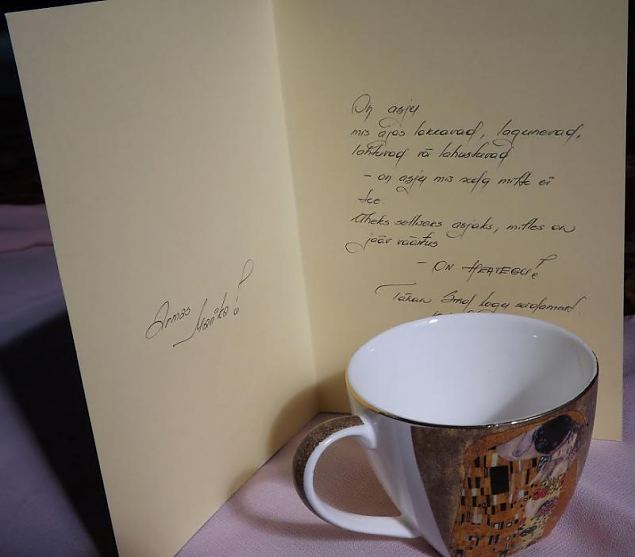 Armas
Marika!
On asju
mis ajas lakkavad, lagunevad,
lahtuvad või lahustuvad
- on asju mis seda mitte ei
tee.
Üheks selliseks asjaks, milles on
jääv väärtus
- ON HEATEGU!
Tänan Sind kogu südamest